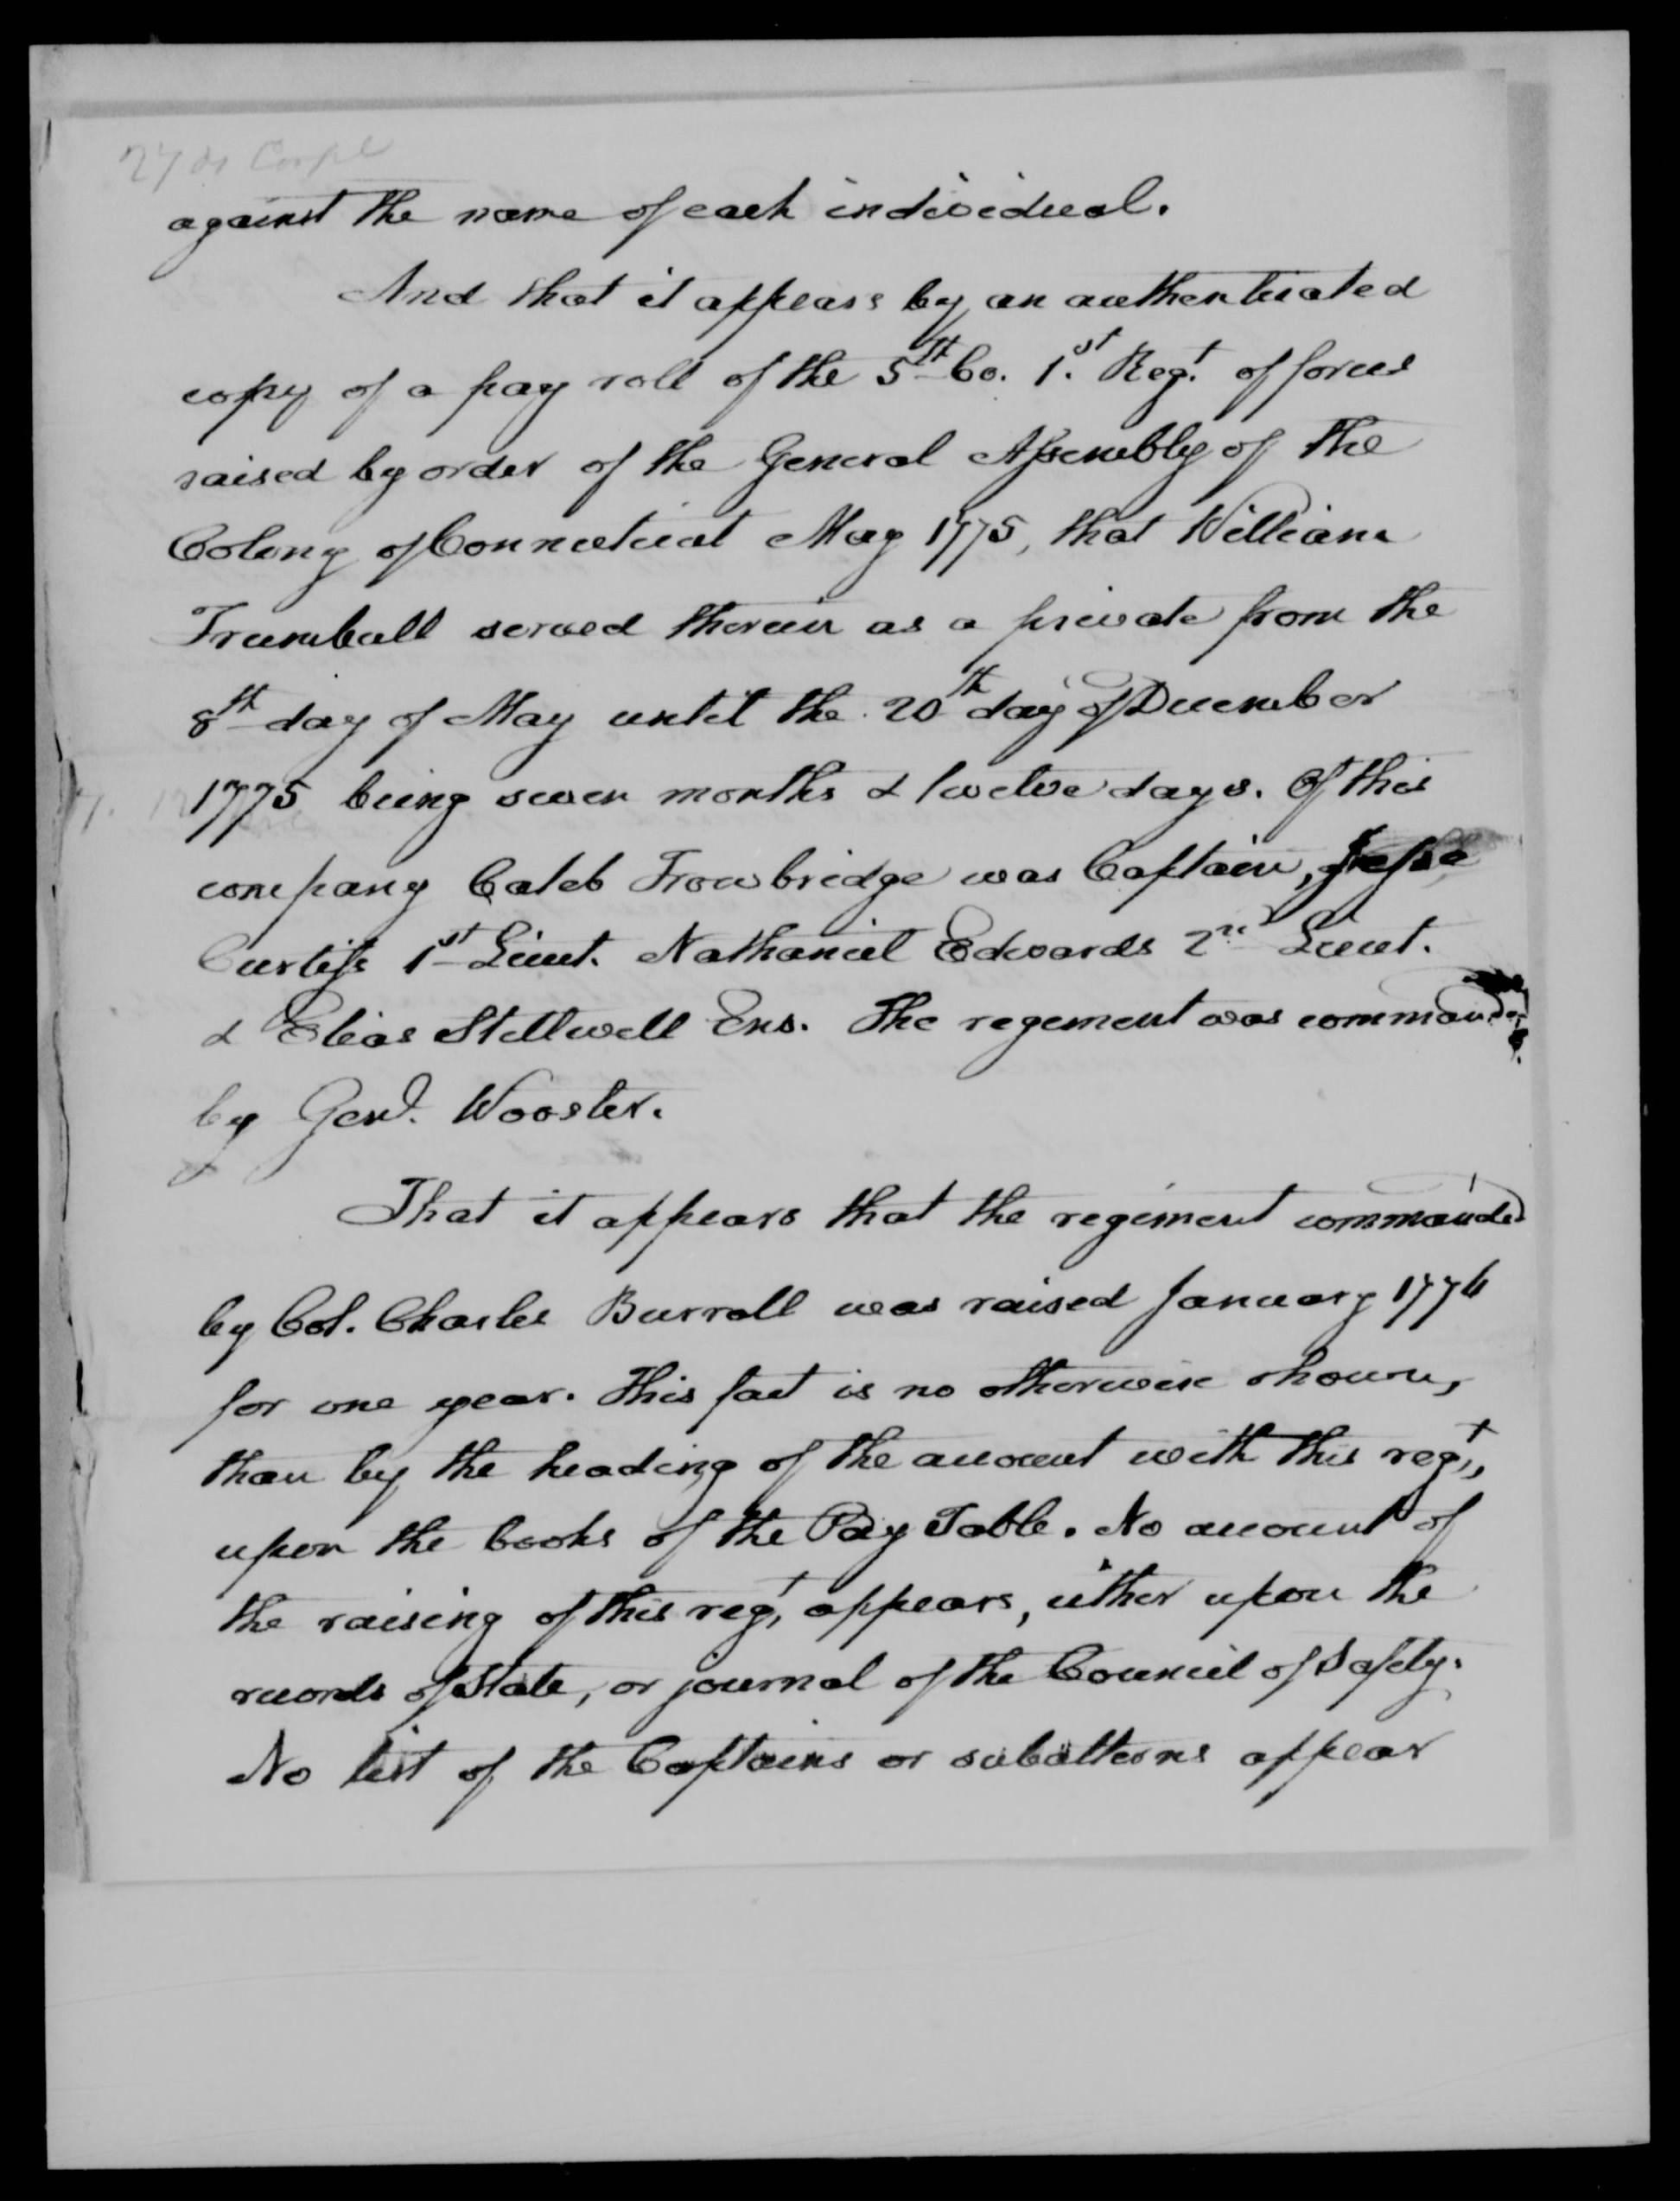 against the name of each individual.
And that it appears by an authenticated
copy of a pay roll of the 5th Co. 1st. Regt. of forces
raised by order of the General Assembly of the
Colony of Connecticut May 1775, that William
Trumbull served therein as a private from the
8th day of May until the 20th day of December
1775 being seven months & twelve days. Of this
company Caleb Trowbridge was Captain, Jesse
Curtiss 1st Lieut. Nathaniel Edwards 2nd Lieut.
& Elias Stillwell Ens. The regement was commanded
by Genl. Wooster.
That it appears that the regiment commanded
by Col. Charles Burrall was raised January 1776
for one year. This fact is no otherwise shown,
than by the heading of the account with this regt,
upon the books of the Pay Table. No account of
the raising of this regt, appears, either upon the
records of State, or journal of the Council of Safety.
No list of the Captains or subalterns appear